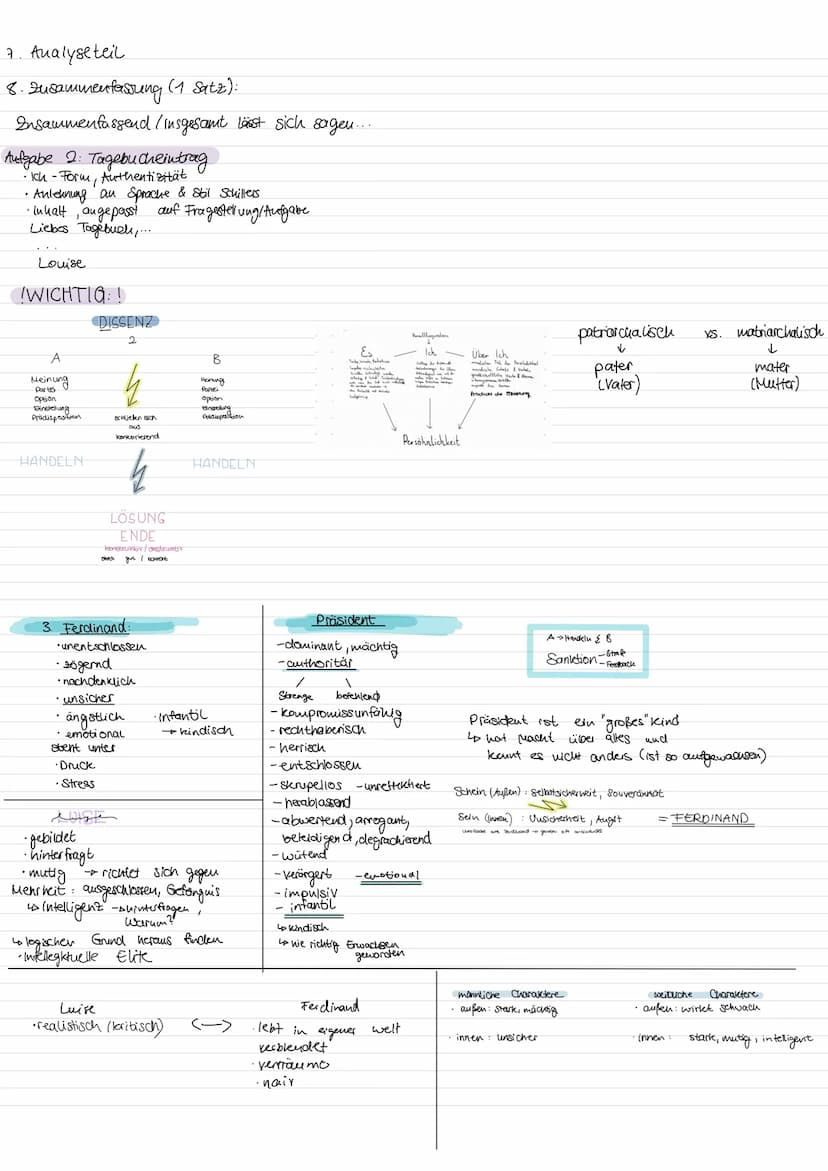 7. Analyseteil
8. Zusammenfassung (1 Satz):
Zusammenfassend/insgesamt lässt sich sagen...
Aufgabe 2: Tagebucheintrag
· Ich-Form, Authentizität
· Anlehnung an Sprache & Stil Schillers
· Inhalt, angepasst auf Fragestellung/Aufgabe
Liebes Tagebuch,...
...
Louise
!WICHTIG:!
DISSENZ
2
A
B
Meinung
Partei
Option
Einstellung
Prädisposition
schließen sich
aus
konkurrierend
Meinung
Partei
Option
Einstellung
Prädisposition
HANDELN
HANDELN
LÖSUNG
ENDE
konstruktiv / destruktiv
gut / schlecht
Es
Ich
Über Ich
Persönlichkeit
patriarchalisch vs. matriarchalisch
↓ ↓
pater mater
(Vater) (Mutter)
3. Ferdinand:
· unentschlossen
· zögernd
· nachdenklich
· unsicher
· ängstlich · infantil
· emotional → kindisch
steht unter
· Druck
· Stress
Luise
· gebildet
· hinterfragt
· mutig → richtet sich gegen
Mehrheit: ausgeschlossen, Gefängnis
↳ Intelligenz → hinterfragen,
Warum?
↳ logischen Grund heraus finden
· Intellegktuelle Elite
Präsident
- dominant, mächtig
- authoritär
/ \
Strenge befehlend
- kompromissunfähig
- rechthaberisch
- herrisch
- entschlossen
- skrupellos - unreflektiert
- herablassend
- abwertend, arrogant,
beleidigend, degradierend
- wütend
- verärgert - emotional
- impulsiv
- infantil
↳ kindisch
↳ nie richtig Erwachsen
geworden
A → Handeln B
Sanktion - Strafe
- Feedback
Präsident ist ein "großes" Kind
↳ hat Macht über alles und
kennt es nicht anders (ist so aufgewachsen)
Schein (Außen): Selbstsicherheit, Souveränität
Sein (Innen): Unsicherheit, Angst = FERDINAND
Luise
· realistisch (kritisch) <—>
Ferdinand
· lebt in eigener Welt
verblendet
· verträumt
· naiv
männliche Charaktere
· außen: stark, mächtig
· innen: unsicher
weibliche Charaktere
· außen: wirkt schwach
· innen: stark, mutig, intelligent